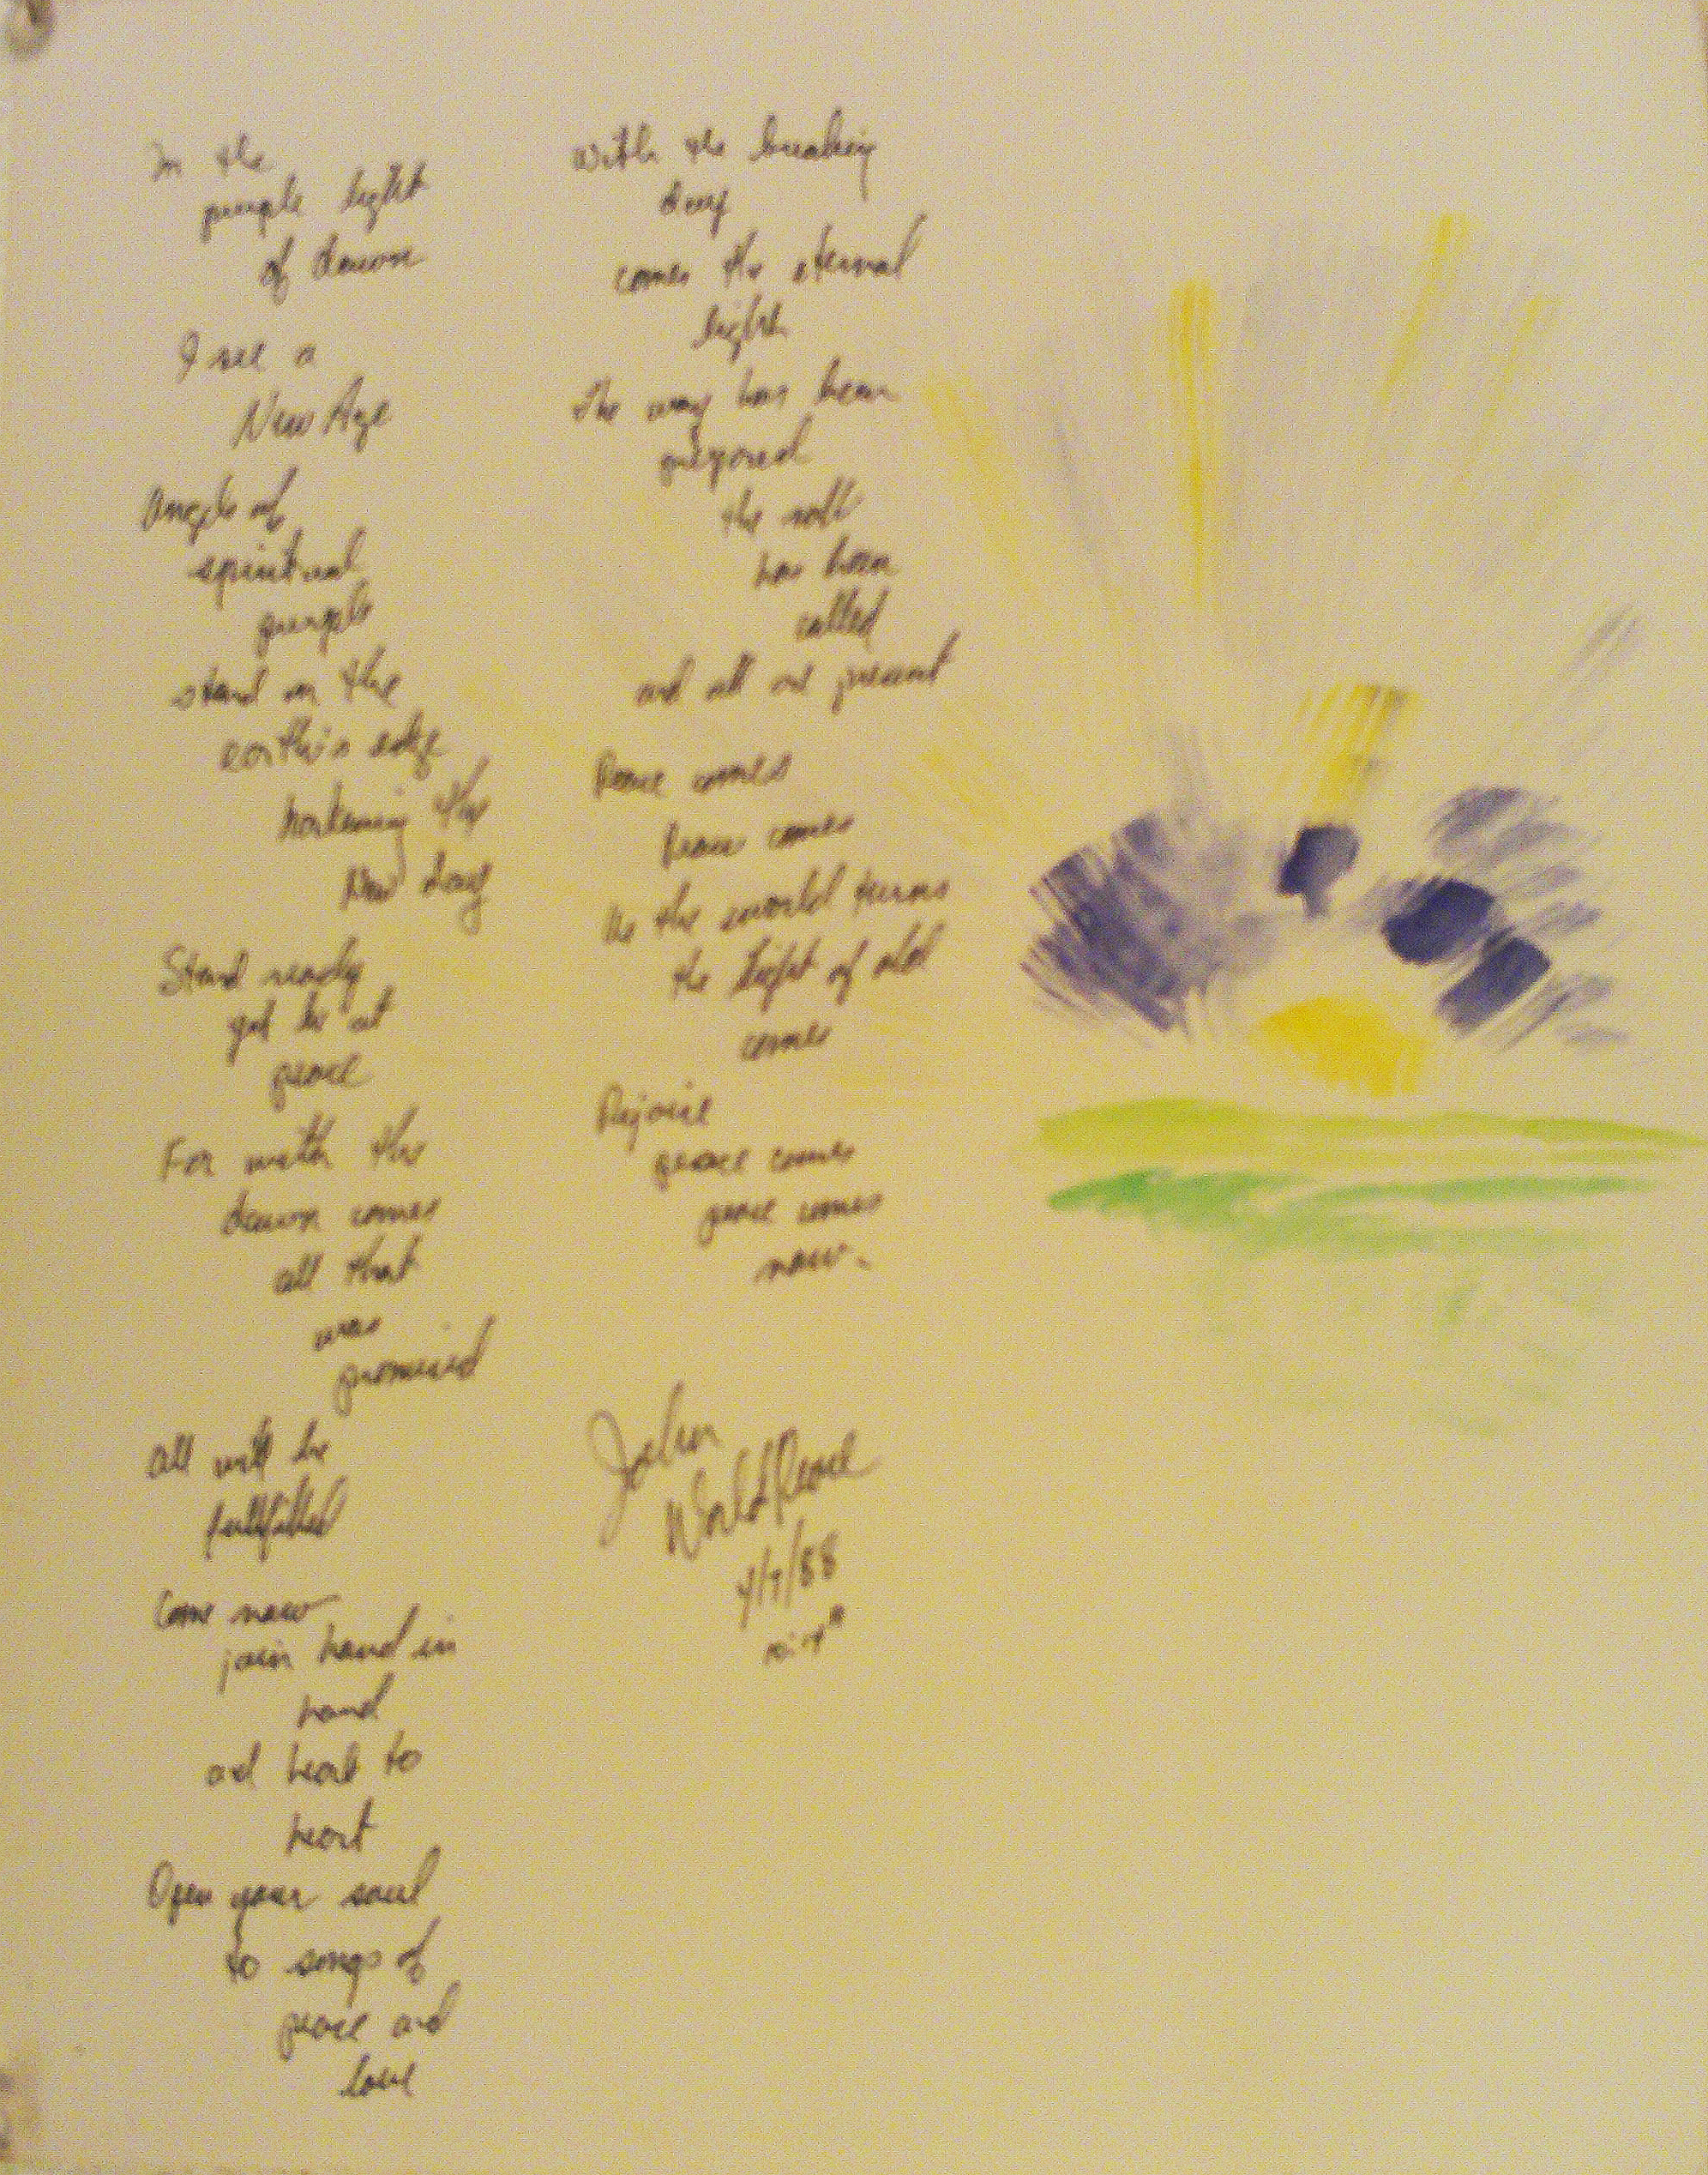 In the
purple light
of dawn
I see a
New Age
Angels of
spiritual
purple
stand on the
earth's edge
the
New day
Stand ready
yet be at
peace
For with the
dawn comes
all that
was
promised
All will be
fullfilled
Come now
join hand in
hand
and heart to
heart
Open your soul
to songs of
peace and
love
With the breaking
day
comes the eternal
light
The way has been
prepared
the roll
has been
called
and all are present
Peace comes
Peace comes
As the world turns
the Light of old
comes
Rejoice
peace comes
peace comes
now.
John
WorldPeace
4/9/88